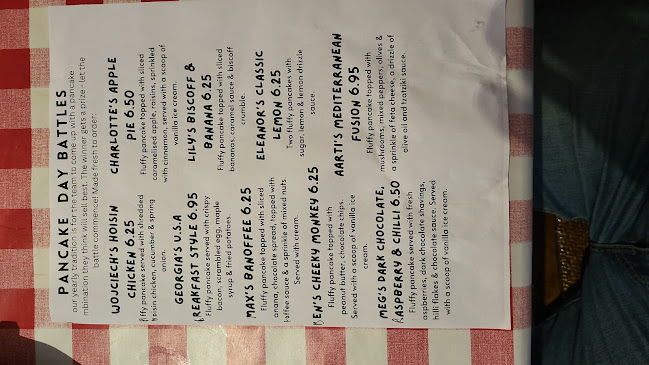 PANCAKE DAY BATTLES
our yearly tradition is for the team to come up with a pancake
mbination they think will sell best. The winner gets a prize - let the
battle commence! Made fresh to order:
WOJCIECH'S HOISIN
CHICKEN 6.25
ffy pancake served with shredded
hoisin chicken, cucumber & spring
onion.
GEORGIA'S U.S.A
BREAKFAST STYLE 6.95
Fluffy pancake served with crispy
bacon, scrambled egg, maple
syrup & fried potatoes.
MAX'S BANOFFEE 6.25
Fluffy pancake topped with sliced
anana, chocolate spread, topped with
toffee sauce & a sprinkle of mixed nuts.
Served with cream.
BEN'S CHEEKY MONKEY 6.25
Fluffy pancake topped with
peanut butter, chocolate chips.
Served with a scoop of vanilla ice
cream.
MEG'S DARK CHOCOLATE,
RASPBERRY & CHILLI 6.50
Fluffy pancake served with fresh
aspberries, dark chocolate shavings,
hilli flakes & chocolate sauce. Served
with a scoop of vanilla ice cream.
CHARLOTTE'S APPLE
PIE 6.50
Fluffy pancake topped with sliced
caramelised apple, raisins, sprinkled
with cinnamon, served with a scoop of
vanilla ice cream.
LILY'S BISCOFF &
BANANA 6.25
Fluffy pancake topped with sliced
bananas, caramel sauce & biscoff
crumble.
ELEANOR'S CLASSIC
LEMON 6.25
Two fluffy pancakes with
sugar, lemon & lemon drizzle
sauce.
AARTI'S MEDITERRANEAN
FUSION 6.95
Fluffy pancake topped with
mushrooms, mixed peppers, olives &
a sprinkle of feta cheese, a drizzle of
olive oil and tzatziki sauce.